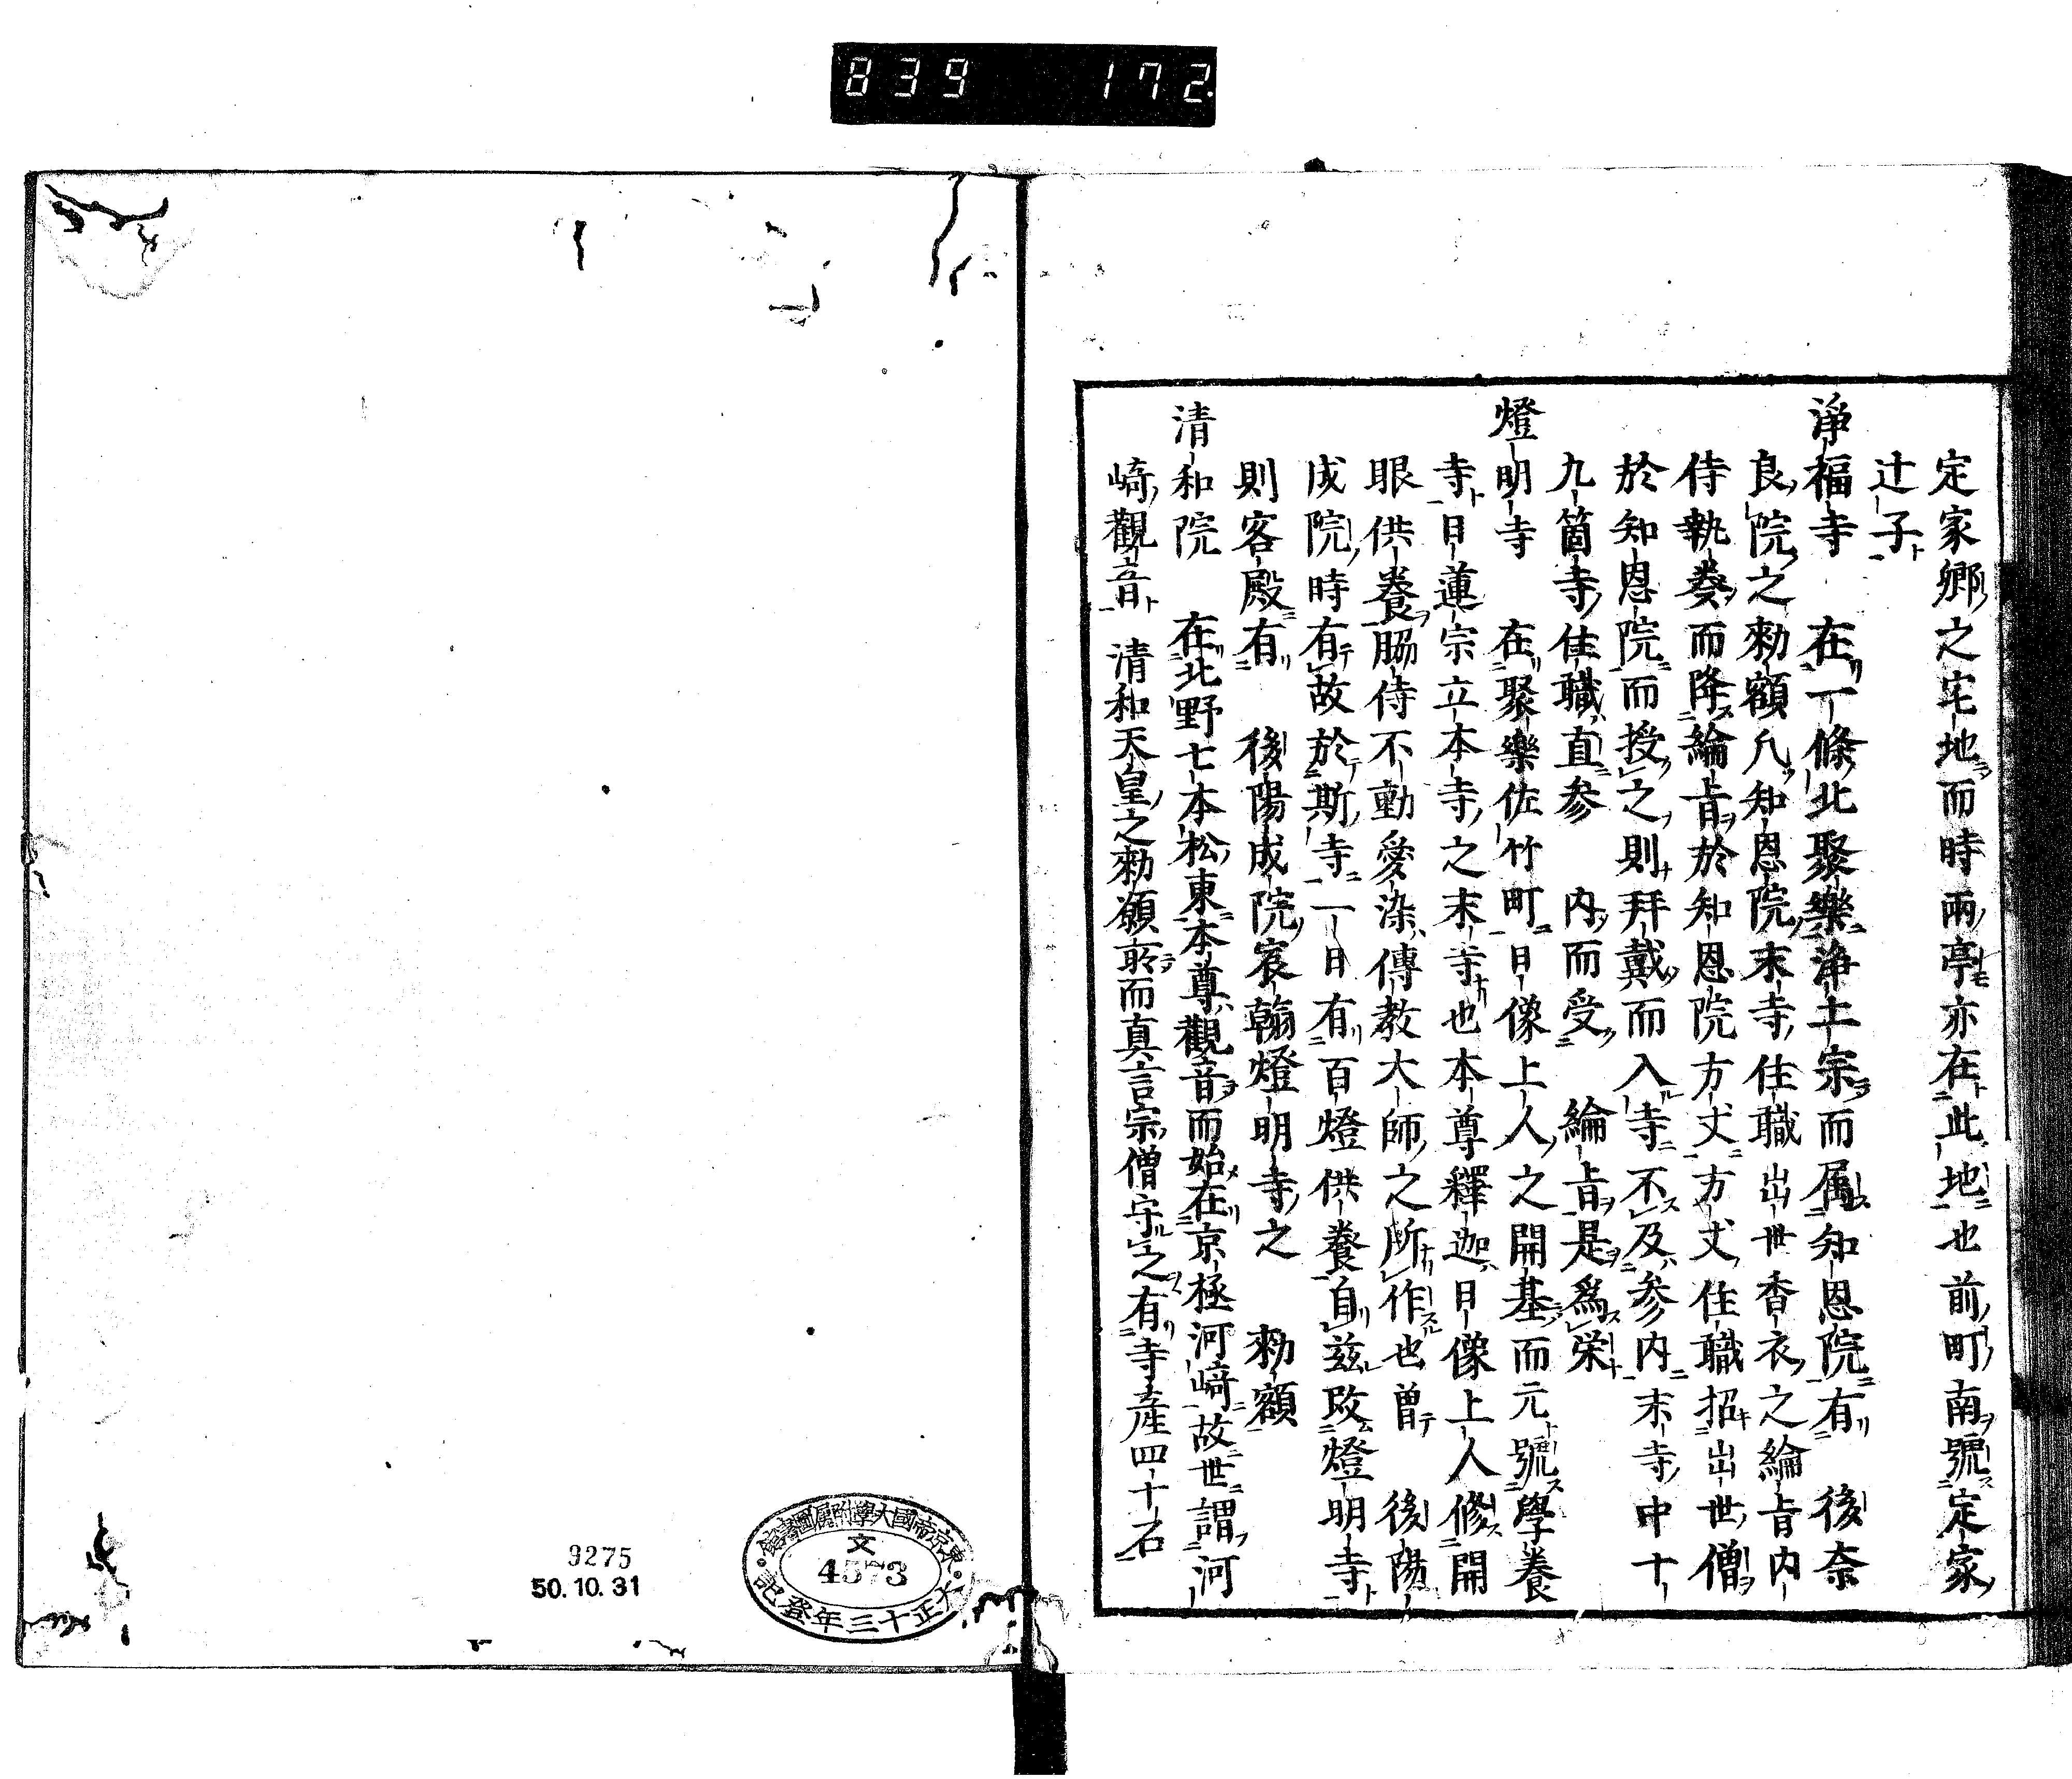 839 172
定家郷之宅地而時兩亭亦在此地也前町南號定家
辻子
淨福寺 在一條北聚樂淨土宗而属知恩院有 後奈
良院之勅額凡知恩院末寺住職出世香衣之綸旨内
侍執奏而降綸旨於知恩院方丈方丈住職招出世僧
於知恩院而授之則拜戴而入寺不及参内末寺中十
九箇寺住職直参 内而受 綸旨是爲栄
燈明寺 在聚樂佐竹町日像上人之開基而元號學養
寺日蓮宗立本寺之末寺也本尊釋迦日像上人修開
眼供養脇侍不動愛染傳教大師之所作也曽 後陽
成院時有故於斯寺一日有百燈供養自兹改燈明寺
則客殿有 後陽成院宸翰燈明寺之 勅額
清和院 在北野七本松東本尊觀音而始在京極河﨑故世謂河
﨑觀音 清和天皇之勅願所而真言宗僧守之有寺產四十石
東京帝國大學附屬圖書館
文
4573
大正十三年登記
9275
50.10.31